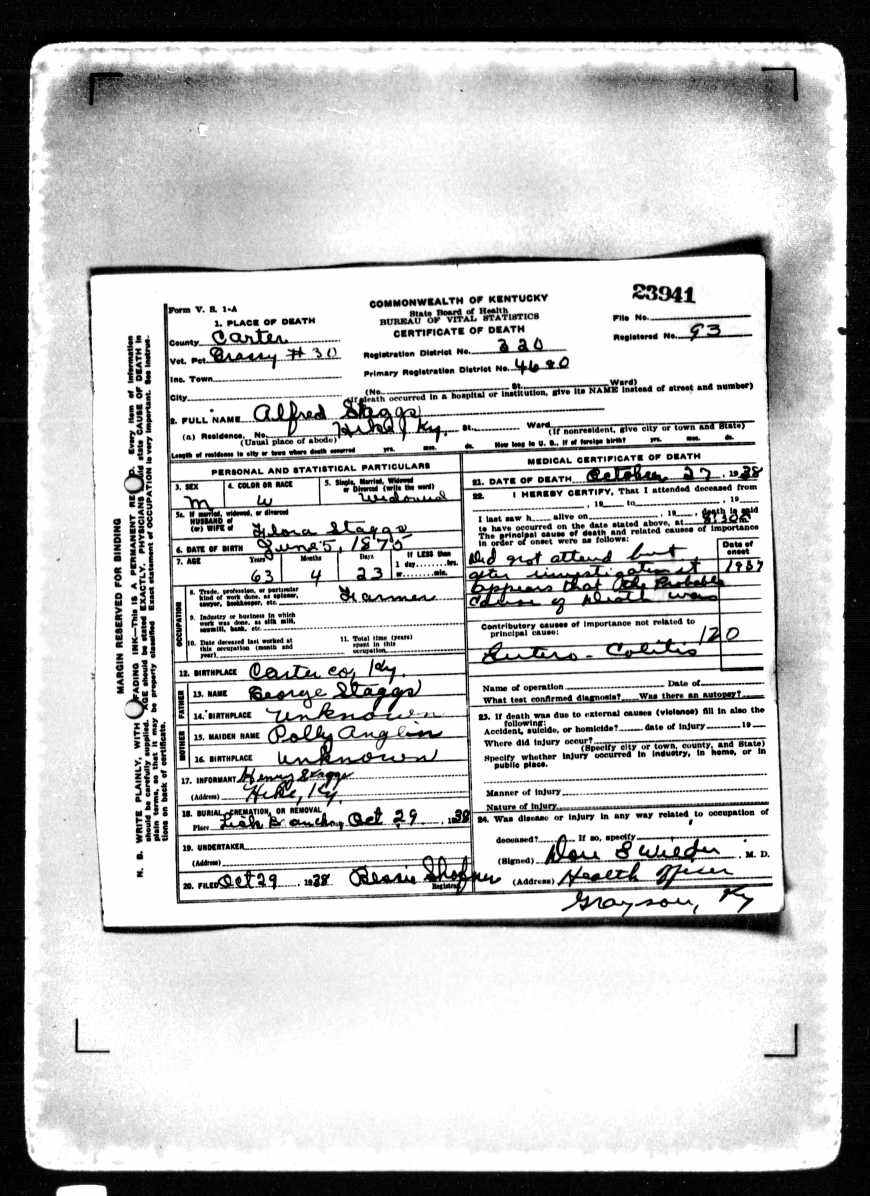 23941
Form V. S. 1-A
COMMONWEALTH OF KENTUCKY
State Board of Health
BUREAU OF VITAL STATISTICS
CERTIFICATE OF DEATH
File No.
Registered No. 93
1. PLACE OF DEATH
County Carter
Vot. Pct. Grassy # 30
Inc. Town
City
Registration District No. 320
Primary Registration District No. 4680
(No. St. Ward)
(If death occurred in a hospital or institution, give its NAME instead of street and number)
2. FULL NAME Alfred Staggs
(a) Residence, No. Ky. St. Ward
(Usual place of abode) (If nonresident, give city or town and State)
Length of residence in city or town where death occurred yrs. mos. ds. How long in U. S., if of foreign birth? yrs. mos. ds.
PERSONAL AND STATISTICAL PARTICULARS
3. SEX M
4. COLOR OR RACE W
5. Single, Married, Widowed or Divorced (write the word) Widowed
5a. If married, widowed, or divorced
HUSBAND of
(or) WIFE of Flora Staggs
6. DATE OF BIRTH June 5, 1875
7. AGE Years 63 Months 4 Days 23 If LESS than 1 day hrs. or min.
OCCUPATION
8. Trade, profession, or particular kind of work done, as spinner, sawyer, bookkeeper, etc. Farmer
9. Industry or business in which work was done, as silk mill, sawmill, bank, etc.
10. Date deceased last worked at this occupation (month and year)
11. Total time (years) spent in this occupation
12. BIRTHPLACE Carter co, Ky.
FATHER
13. NAME George Staggs
14. BIRTHPLACE Unknown
MOTHER
15. MAIDEN NAME Polly Anglin
16. BIRTHPLACE Unknown
17. INFORMANT Henry Staggs
(Address) Ky.
18. BURIAL, CREMATION, OR REMOVAL
Place Oct 29, 1938
19. UNDERTAKER
(Address)
20. FILED Oct 29, 1938 Bessie
Registrar
MEDICAL CERTIFICATE OF DEATH
21. DATE OF DEATH October 27, 1938
22. I HEREBY CERTIFY, That I attended deceased from
, 19 to , 19
I last saw h alive on , 19 , death is said
to have occurred on the date stated above, at
The principal cause of death and related causes of importance
in order of onset were as follows:
Date of onset
Did not attend but
after investigation it 1937
appears that the Probable
cause of death was
Contributory causes of importance not related to
principal cause:
Entero-Colitis 120
Name of operation Date of
What test confirmed diagnosis? Was there an autopsy?
23. If death was due to external causes (violence) fill in also the
following:
Accident, suicide, or homicide? date of injury 19
Where did injury occur?
(Specify city or town, county, and State)
Specify whether injury occurred in industry, in home, or in
public place.
Manner of injury
Nature of injury
24. Was disease or injury in any way related to occupation of
deceased? If so, specify
(Signed) M. D.
(Address) Health Officer
Grayson, Ky
MARGIN RESERVED FOR BINDING